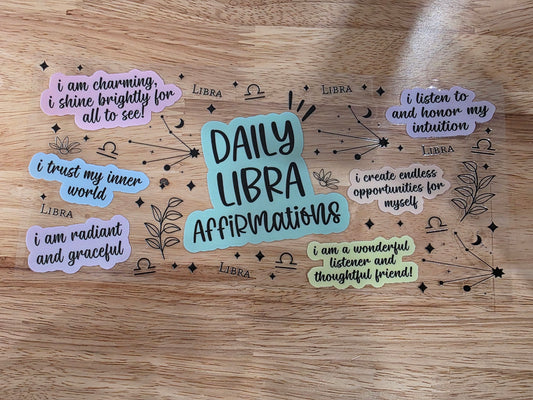 i am charming,
i shine brightly for
all to see!
LIBRA
LIBRA
i listen to
and honor my
intuition
DAILY
LIBRA
AFFIRMATIONS
LIBRA
LIBRA
i trust my inner
world
i create endless
opportunities for
myself
LIBRA
i am radiant
and graceful
i am a wonderful
listener and
thoughtful friend!
LIBRA
LIBRA